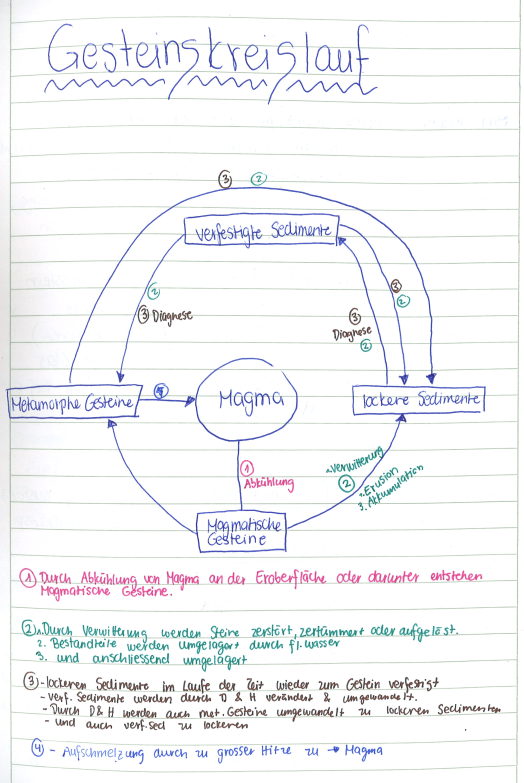 Gesteinskreislauf
③ ②
verfestigte Sedimente
②
③ Diagnese
③
②
③
Diagnese
②
Metamorphe Gesteine
Magma
lockere Sedimente
①
Abkühlung
1. Verwitterung
②
2. Erusion
3. Akkumulation
Magmatische
Gesteine
① Durch Abkühlung von Magma an der Eroberfläche oder darunter entstehen
Magmatische Gesteine.
② 1. Durch Verwitterung werden Steine zerstört, zertümmert oder aufgelöst.
2. Bestandteile werden umgelagert durch fl. wasser
3. und anschliessend umgelagert
③ - lockeren Sedimente im Laufe der Zeit wieder zum Gestein verfestigt
- verf. Sedimente werden durch D & H verändert & umgewandelt.
- Durch D & H werden auch met. Gesteine umgewandelt zu lockeren Sedimenten
- und auch verf. sed zu lockeren
④ - Aufschmelzung durch zu grosser Hitze zu → Magma